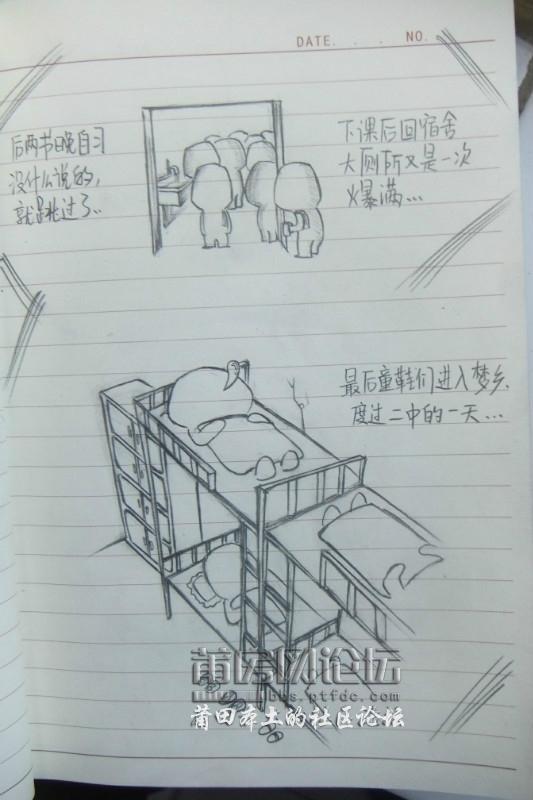 DATE. . . . NO.
后两节晚自习
没什么说的,
就跳过了..
下课后回宿舍
大厕所又是一次
火暴满...
最后童鞋们进入梦乡.
度过二中的一天...
莆房网论坛
bbs.ptfdc.com
莆田本土的社区论坛